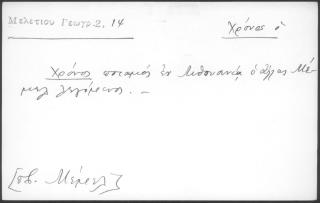 Μελετίου Γεωγρ 2, 14
Χρόνος ὁ
Χρόνος ποταμὸς ἐν Λιθουανίᾳ ὁ ἄλλως Μέ-
μελ λεγόμενος. –
[πβ. Μέμελ]